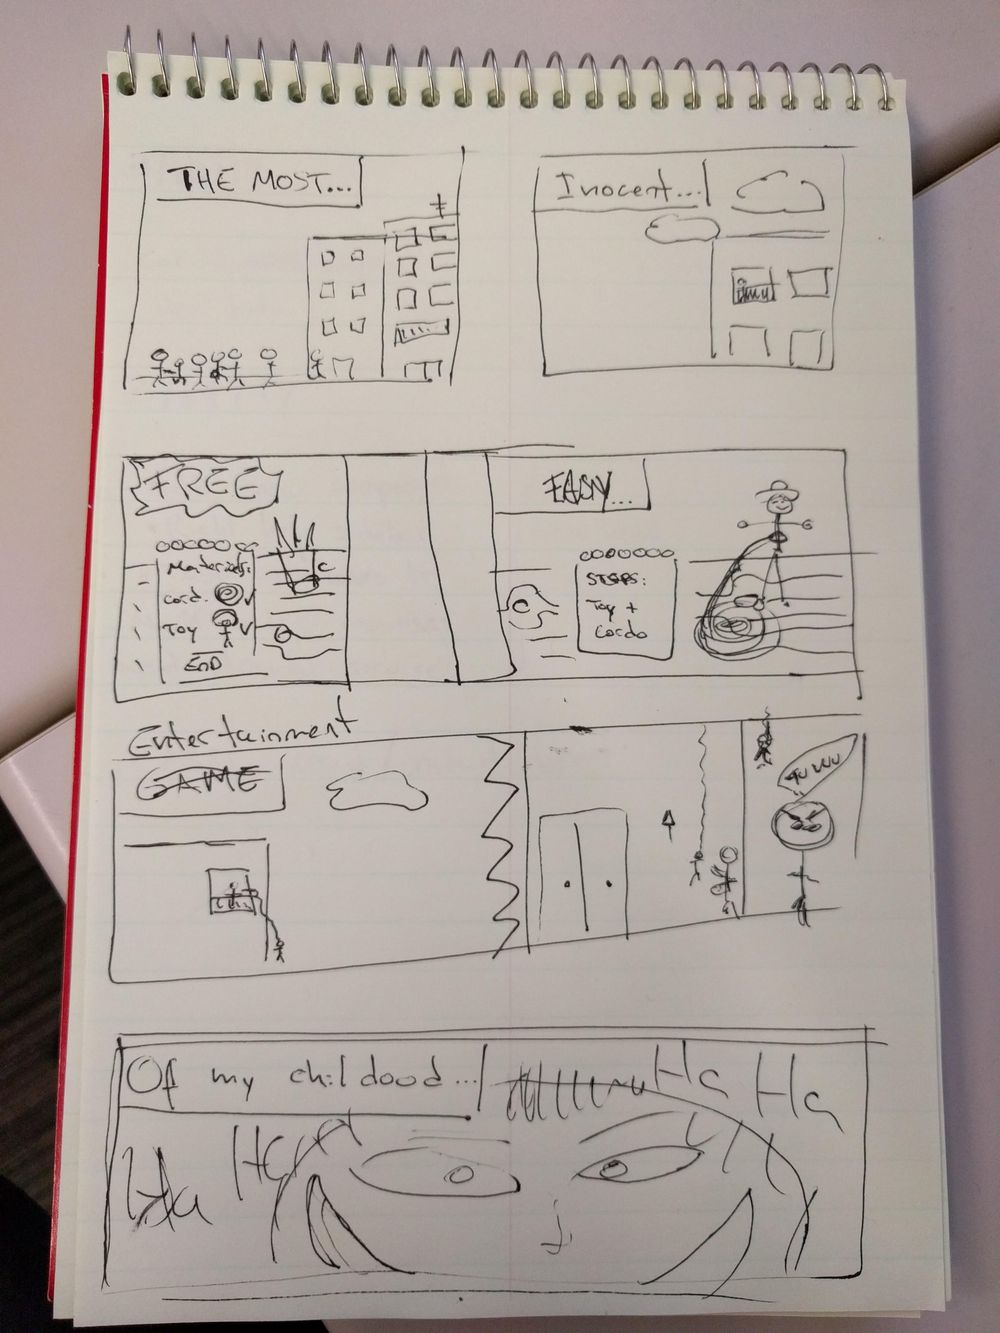 THE MOST...
Inocent...
FREE
Materials:
cord. V
Toy V
END
EASY...
STEPS:
Toy +
Cordo
Entertainment
GAME
Of my childood...
Ha Ha
Ha Ha